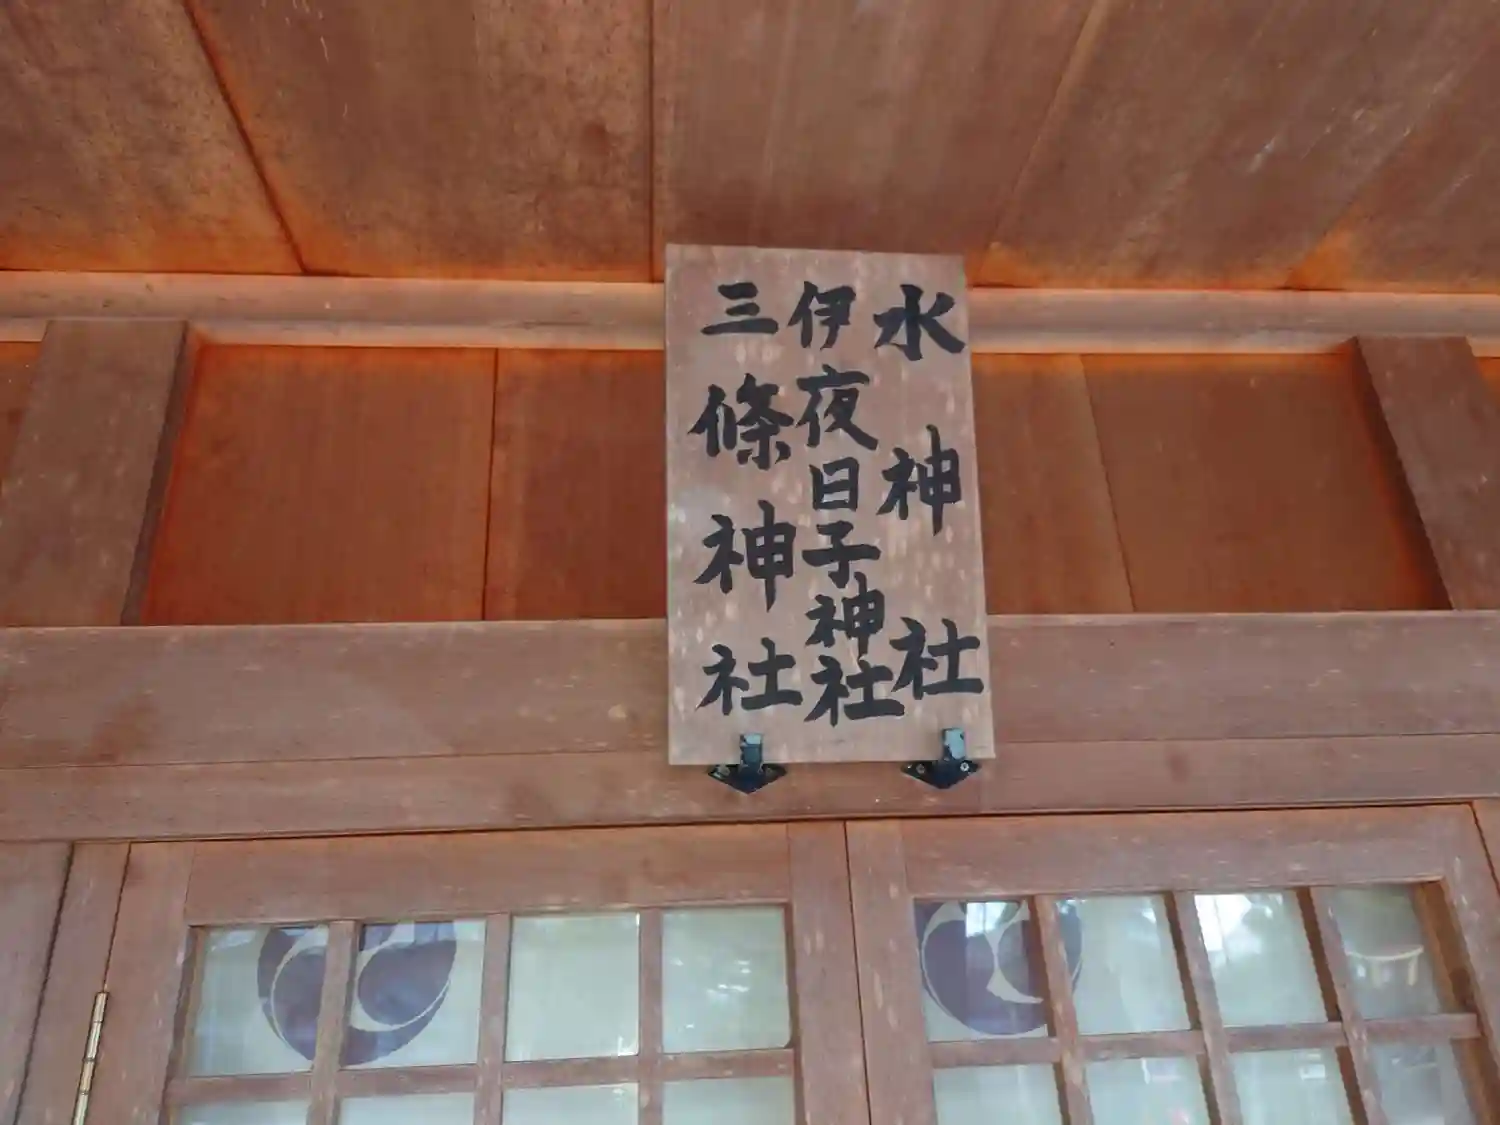 水神社
伊夜日子神社
三條神社